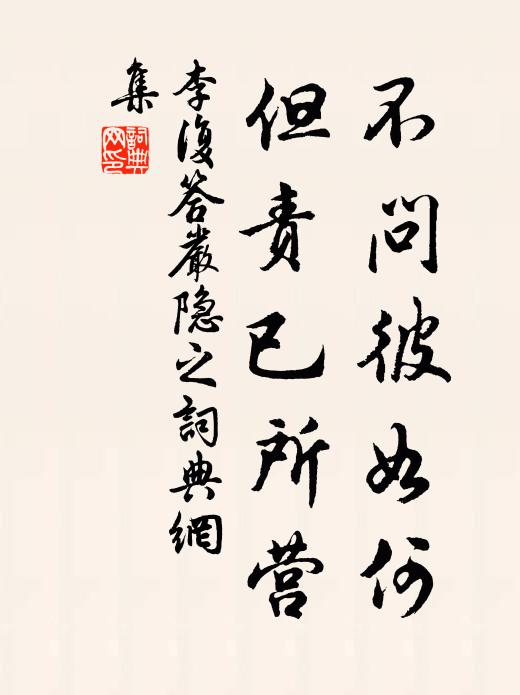 不问彼如何
但责已所营
李復答嚴隐之詞典網
集
詞典网印